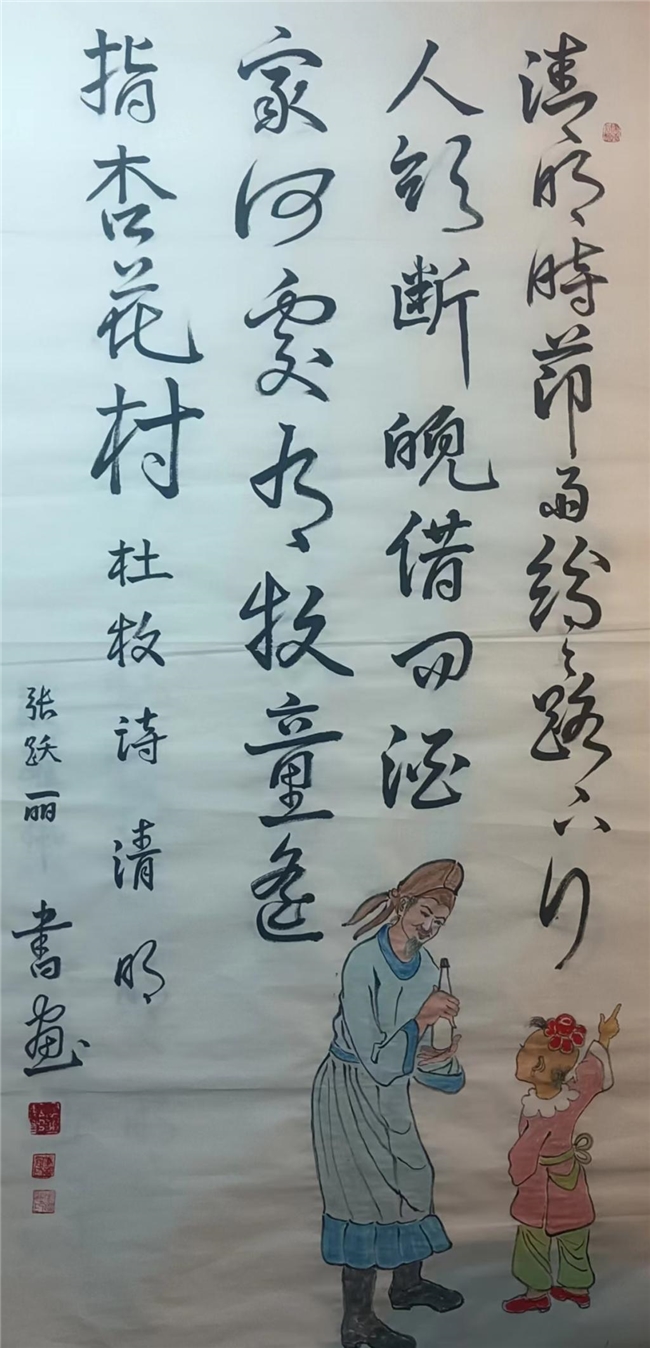 清明時節雨紛々路上行
人欲斷魂借问酒
家何處有牧童遙
指杏花村
杜牧诗清明
张跃丽書畫